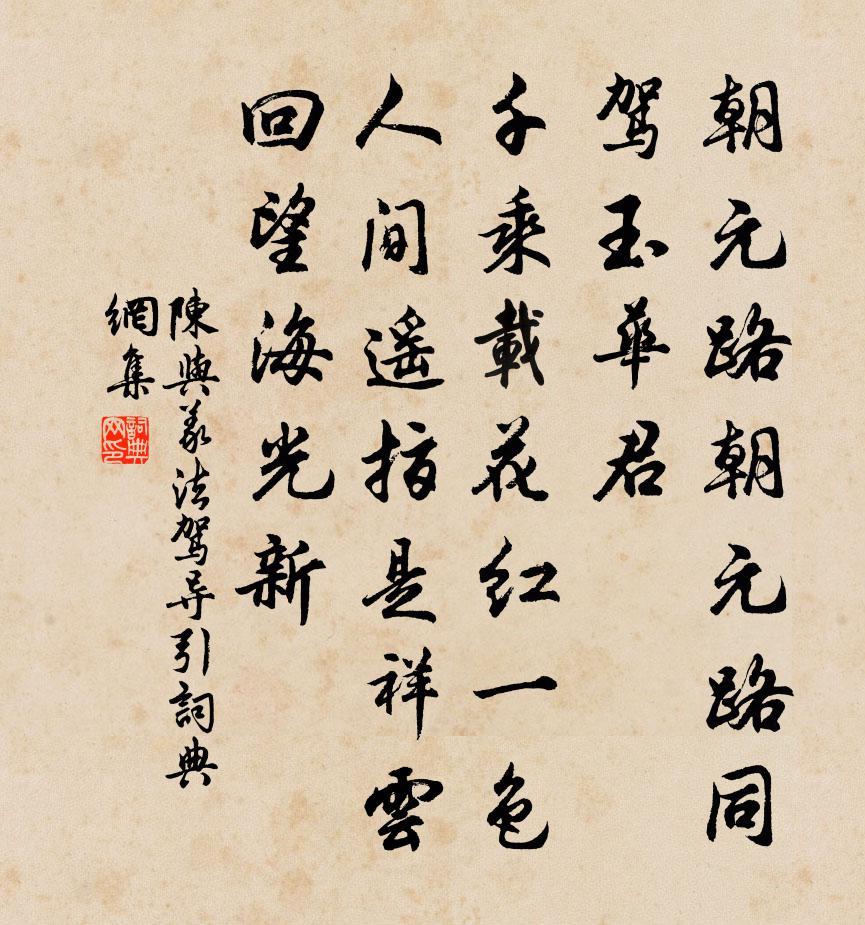 朝元路朝元路同
驾玉華君
千乘載花紅一色
人间遥指是祥雲
回望海光新
陳與义法驾导引詞典
網集
詞典
网印